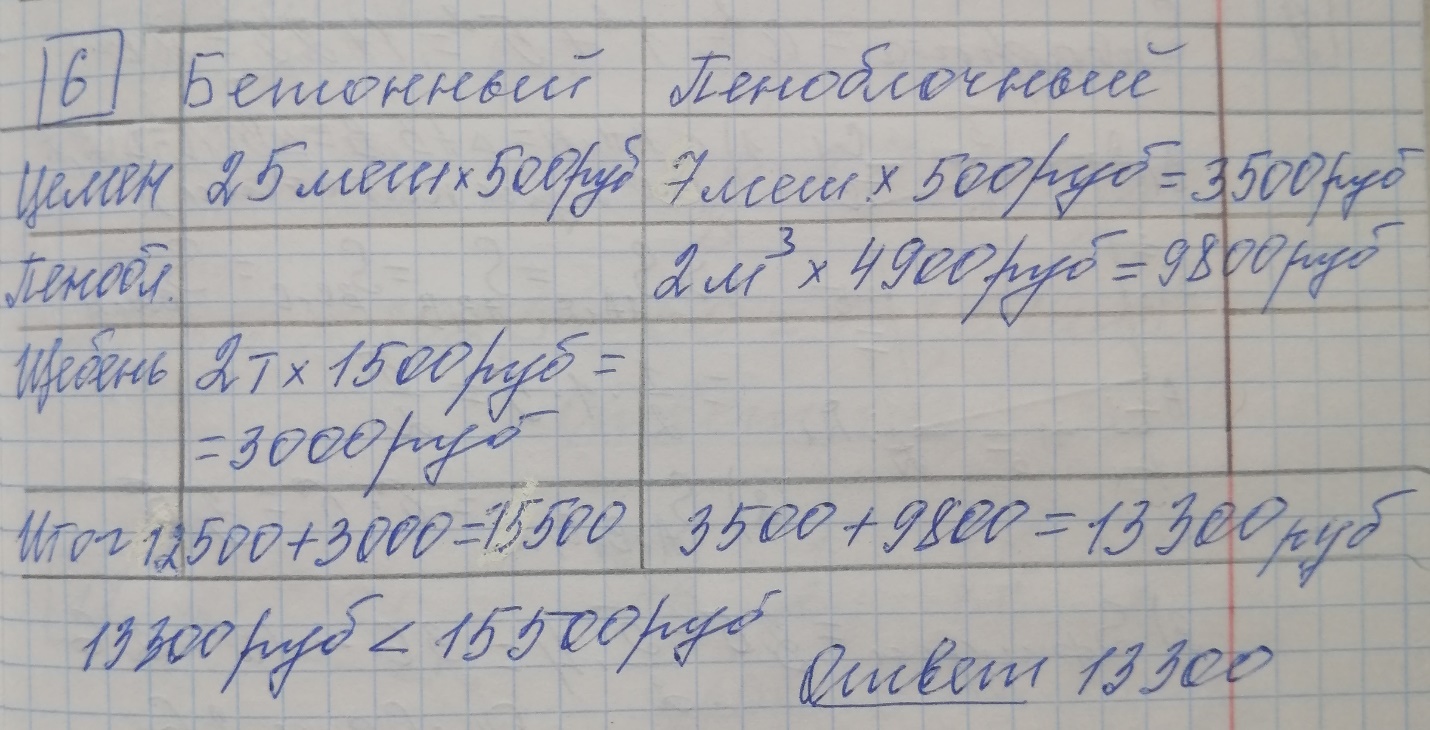 6 Бетонный Пеноблочный
Цемен 25 меш × 500 руб 7 меш. × 500 руб = 3500 руб
Пенобл. 2 м³ × 4900 руб = 9800 руб
Щебень 2 т × 1500 руб =
= 3000 руб
Итог 12500 + 3000 = 15500 3500 + 9800 = 13300 руб
13300 руб < 15500 руб
Ответ 13300